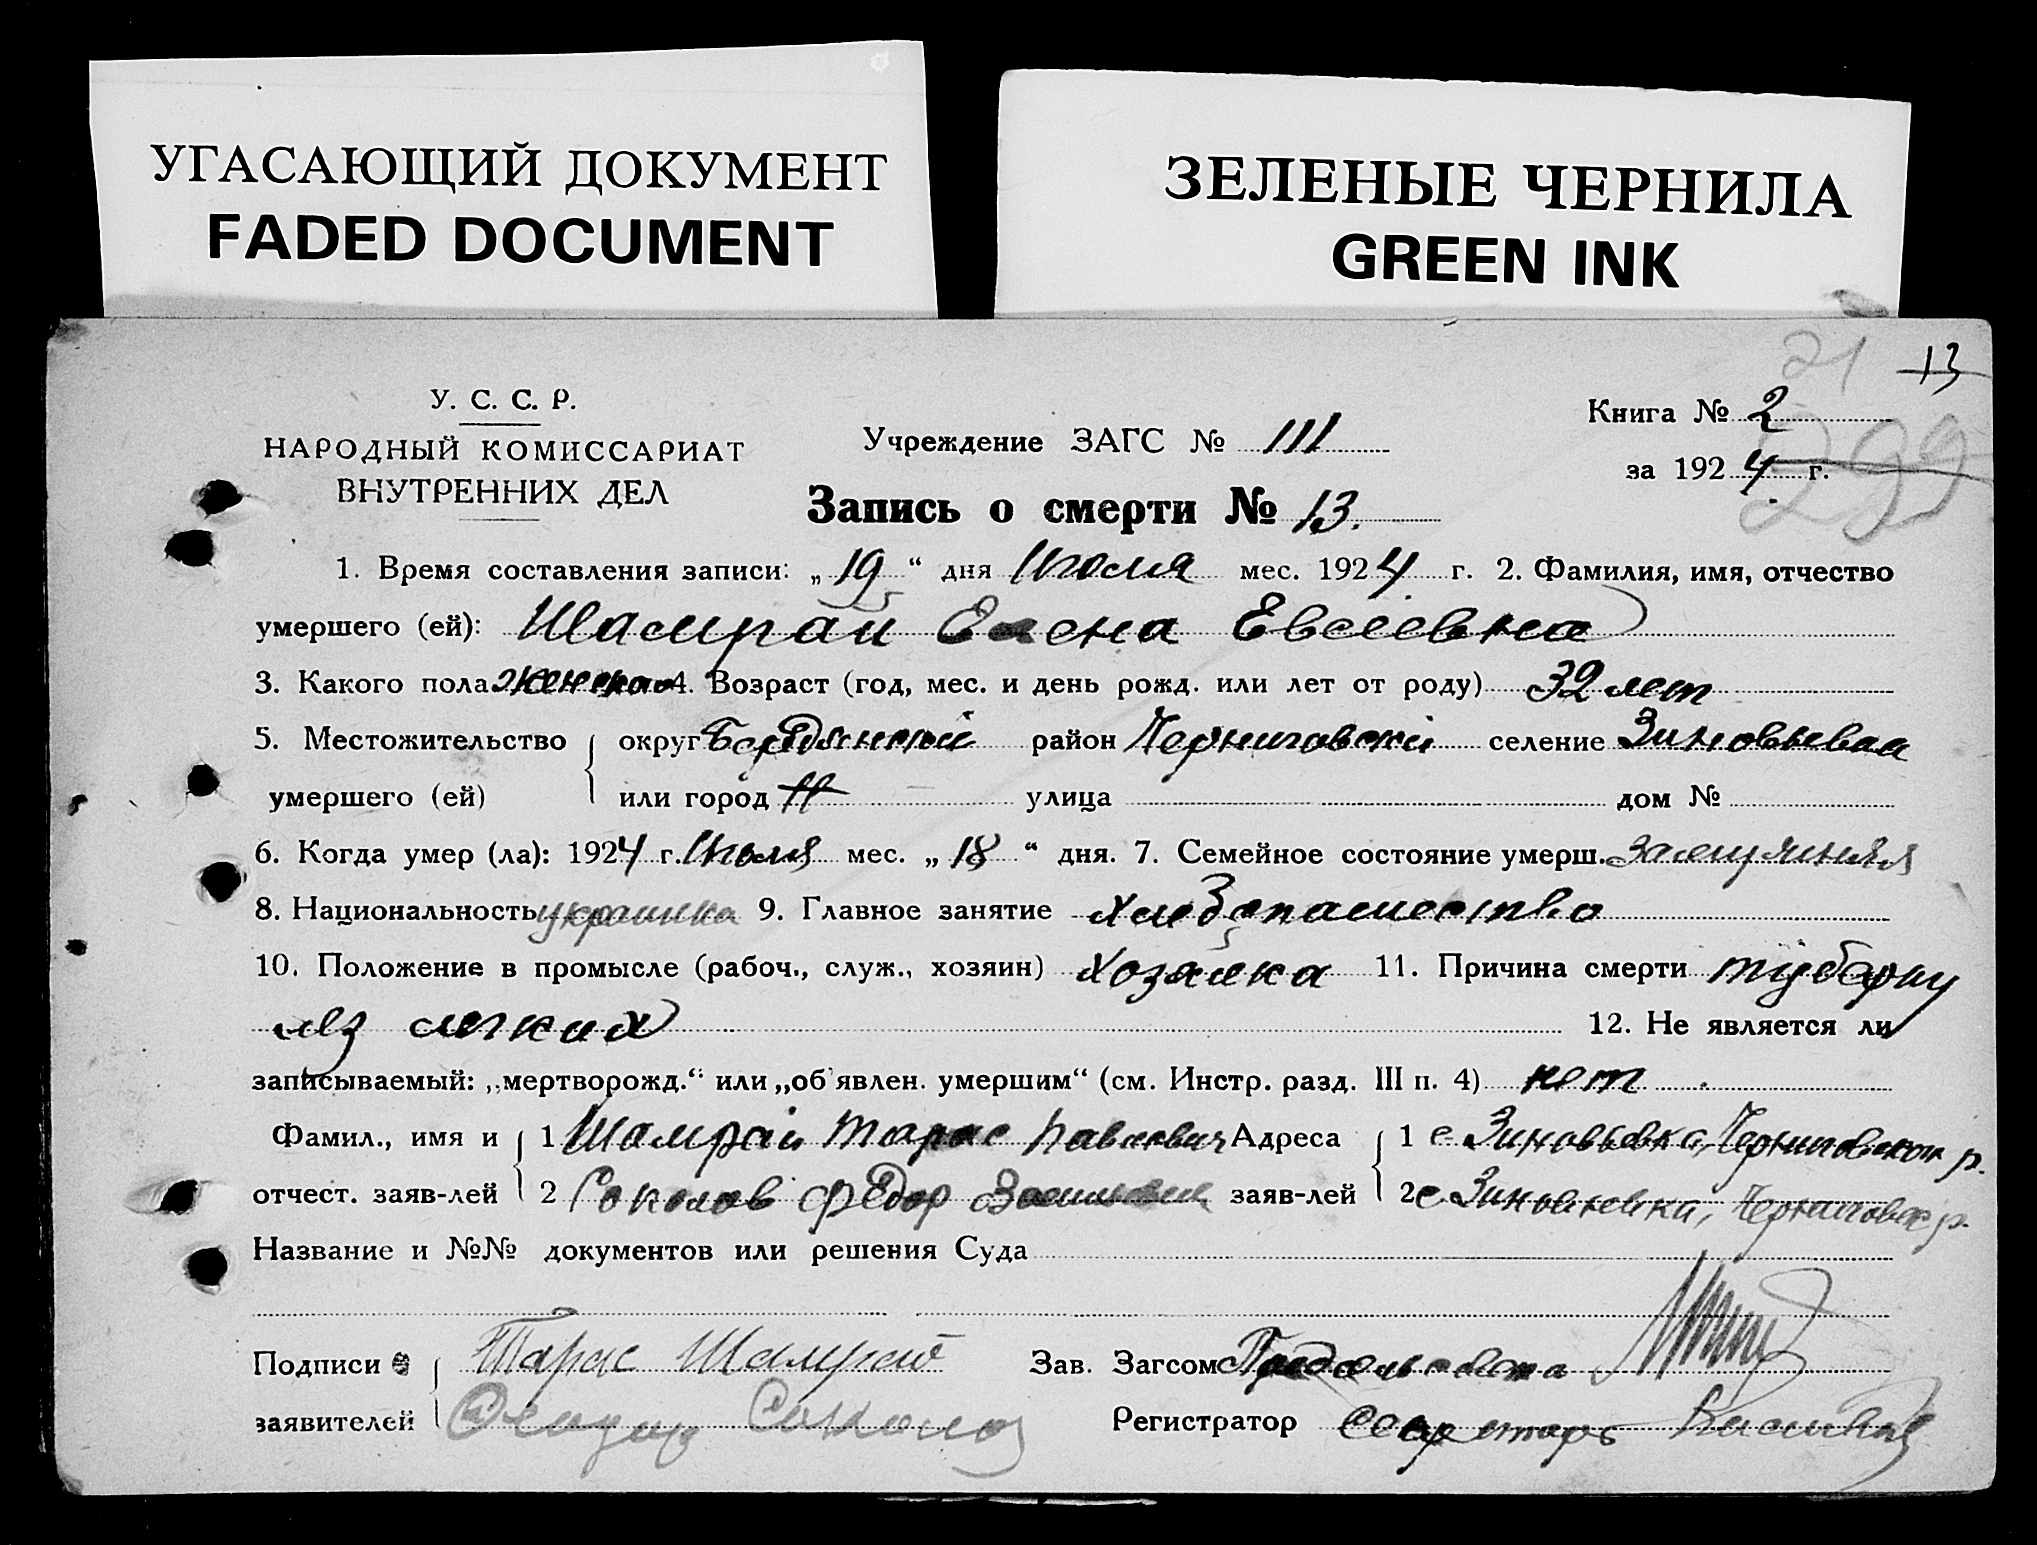 УГАСАЮЩИЙ ДОКУМЕНТ
FADED DOCUMENT
ЗЕЛЕНЫЕ ЧЕРНИЛА
GREEN INK
21 13
299
У. С. С. Р.
НАРОДНЫЙ КОМИССАРИАТ
ВНУТРЕННИХ ДЕЛ
Учреждение ЗАГС № 111
Книга № 2
за 1924 г.
Запись о смерти № 13.
1. Время составления записи: „19“ дня Июля мес. 1924 г. 2. Фамилия, имя, отчество
умершего (ей): Шамрай Елена Евсеевна
3. Какого пола женска 4. Возраст (год, мес. и день рожд. или лет от роду) 32 лет
5. Местожительство округ Бердянский район Черниговскі селение Зиновьевка
умершего (ей) или город улица дом №
6. Когда умер (ла): 1924 г. Июля мес. „18“ дня. 7. Семейное состояние умерш. замужняя
8. Национальность украинка 9. Главное занятие хлебопашество
10. Положение в промысле (рабоч., служ., хозяин) Хозяйка 11. Причина смерти туберку
лез легких 12. Не является ли
записываемый: „мертворожд.“ или „об'явлен. умершим“ (см. Инстр. разд. III п. 4) нет
Фамил., имя и 1 Шамрай Тарас Павлович Адреса 1 с. Зиновьевка, Черниговском р.
отчест. заяв-лей 2 Соколов Фёдор заяв-лей 2 с. Зиновьевка, Черниговск р.
Название и №№ документов или решения Суда
Подписи Тарас Шамрай Зав. Загсом
заявителей Соколов Регистратор Секретарь